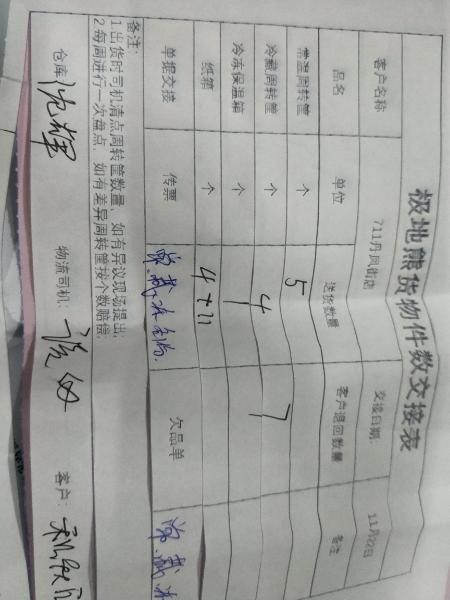 极地熊货物件数交接表
客户名称 711丹凤街店 交接日期: 11月22日
品名 单位 送货数量 客户退回数量 备注
常温周转筐 个 5
冷藏周转筐 个 4 7
冷冻保温箱 个 1
纸箱 个 4+11
单据交接 传票 欠品单
备注:
1.出货时司机清点周转筐数量,如有异议现场提出;
2.每周进行一次盘点,如有差异周转筐按个数赔偿;
仓库: 沈辉 物流司机: 客户: